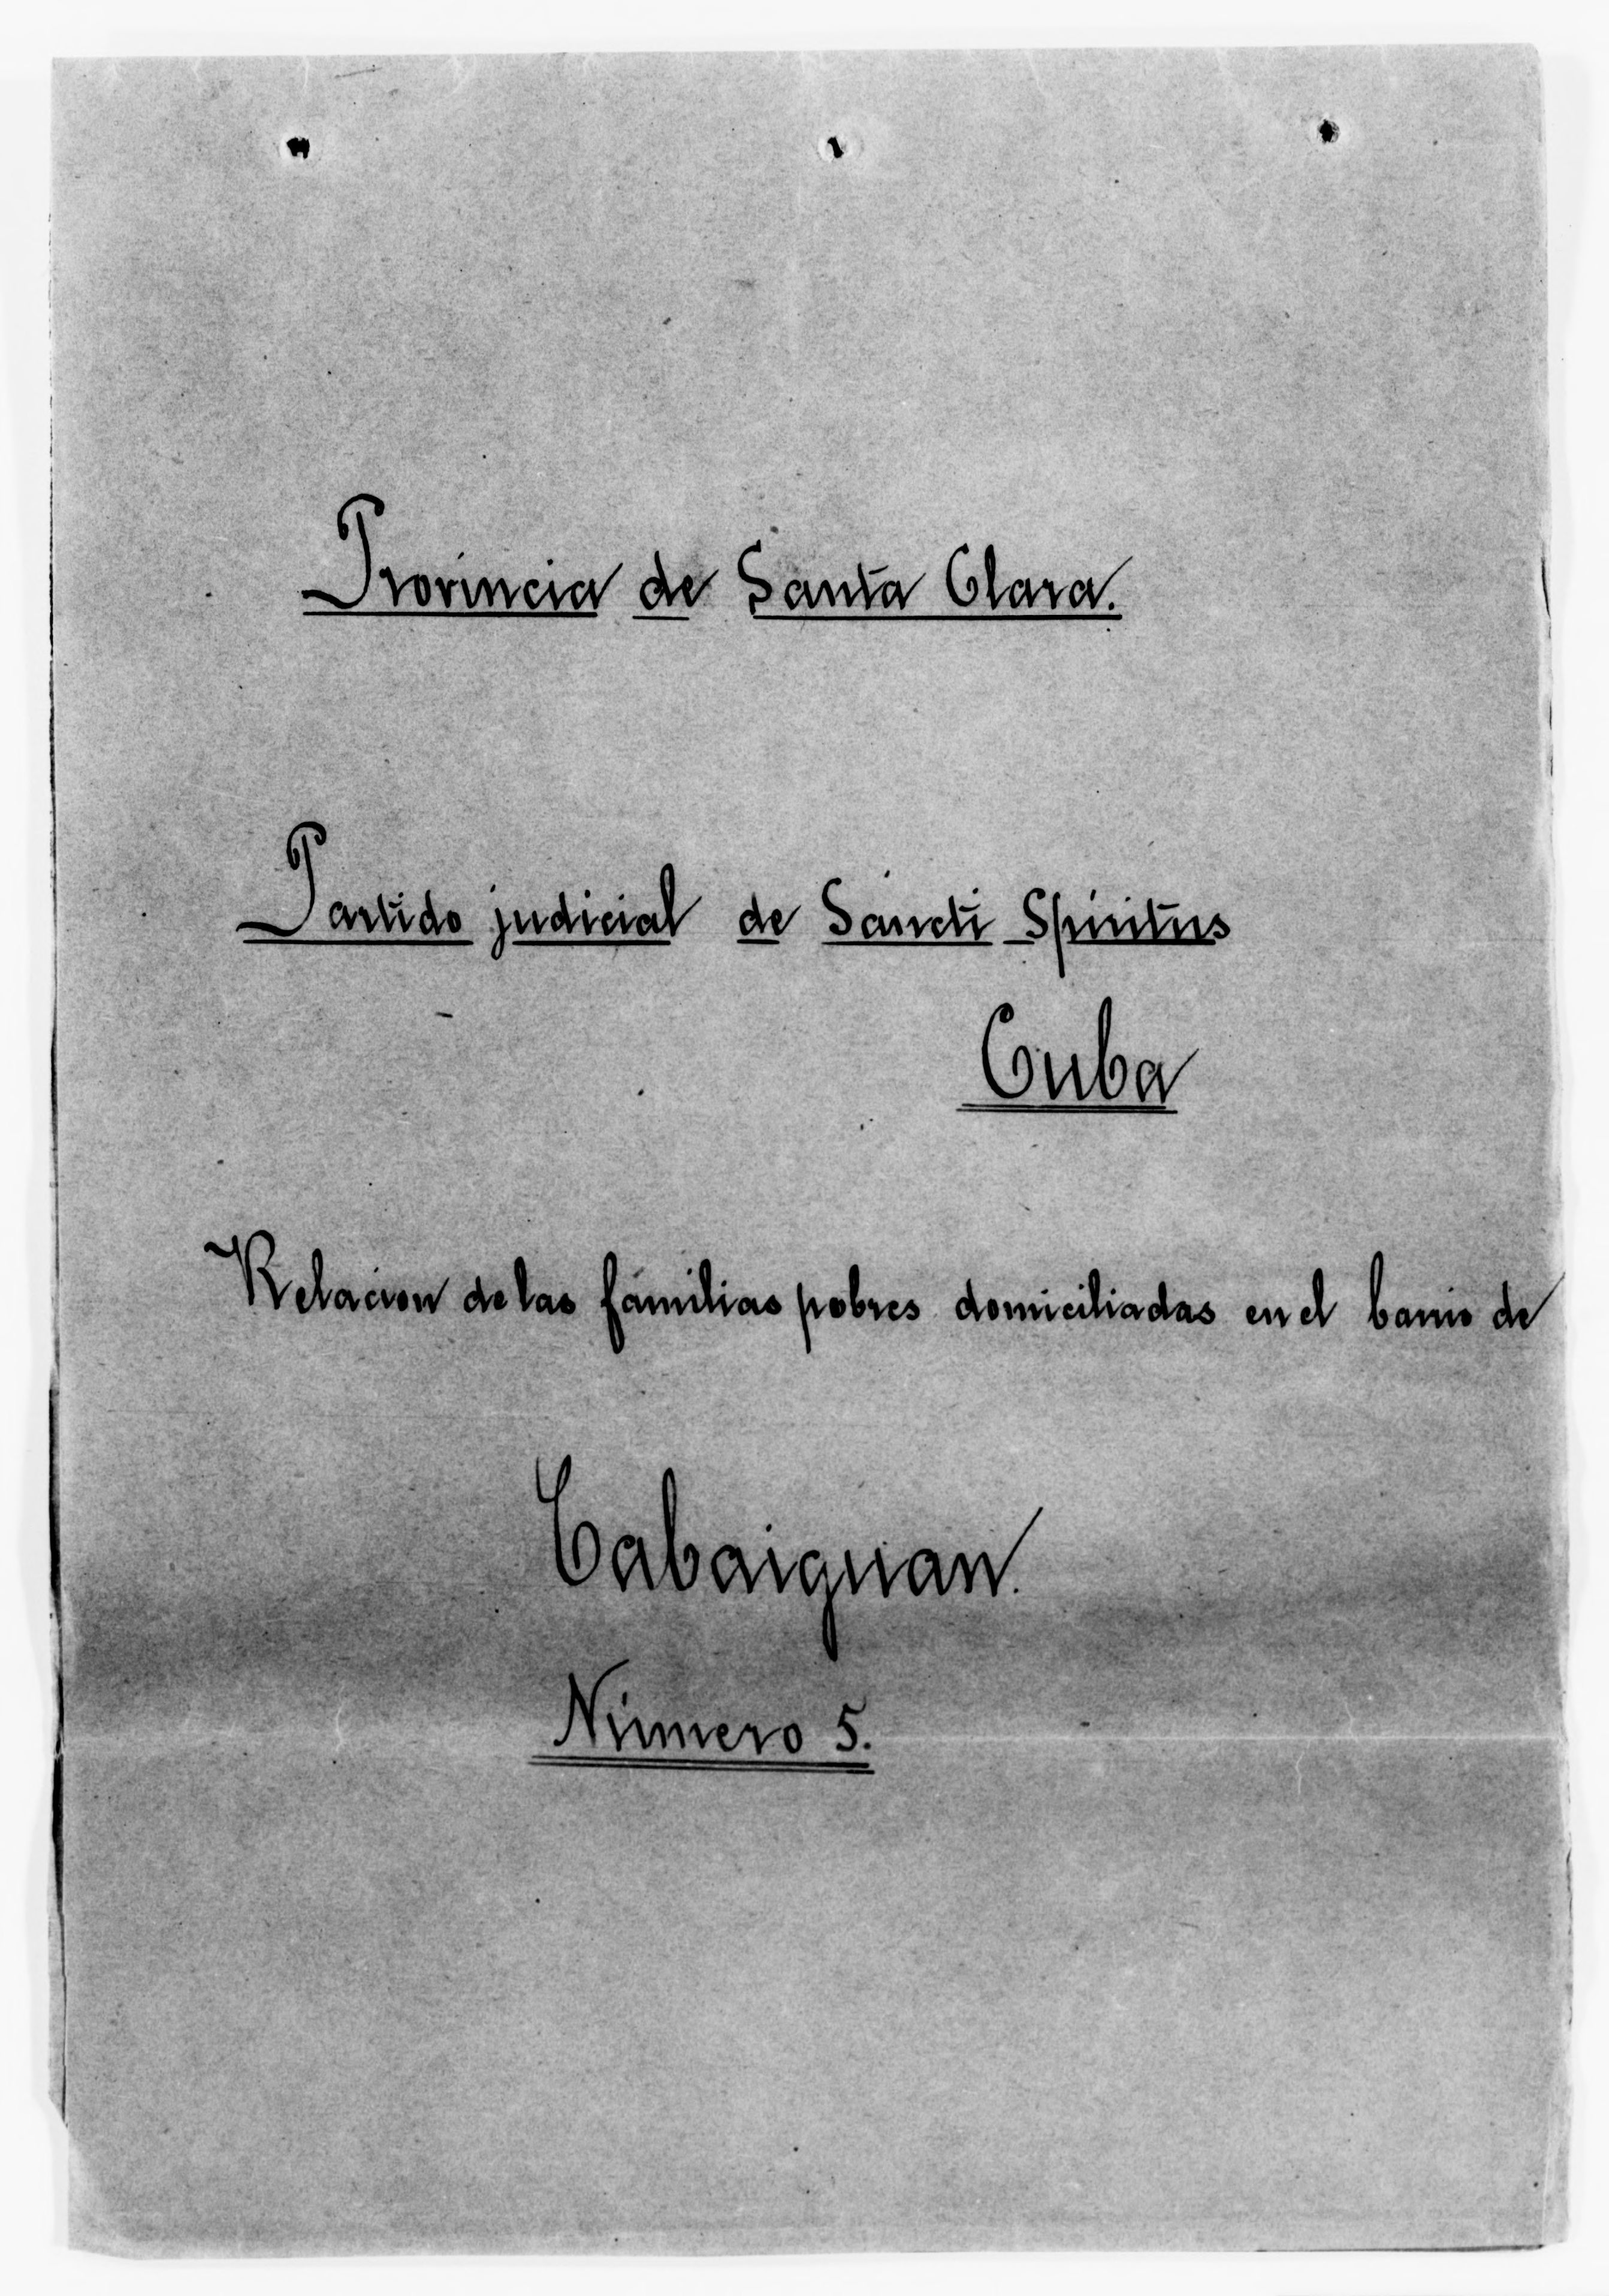 Provincia de Santa Clara.
Partido judicial de Sancti Spiritus
Cuba
Relacion de las familias pobres domiciliadas en el barrio de
Cabaiguan.
Número 5.